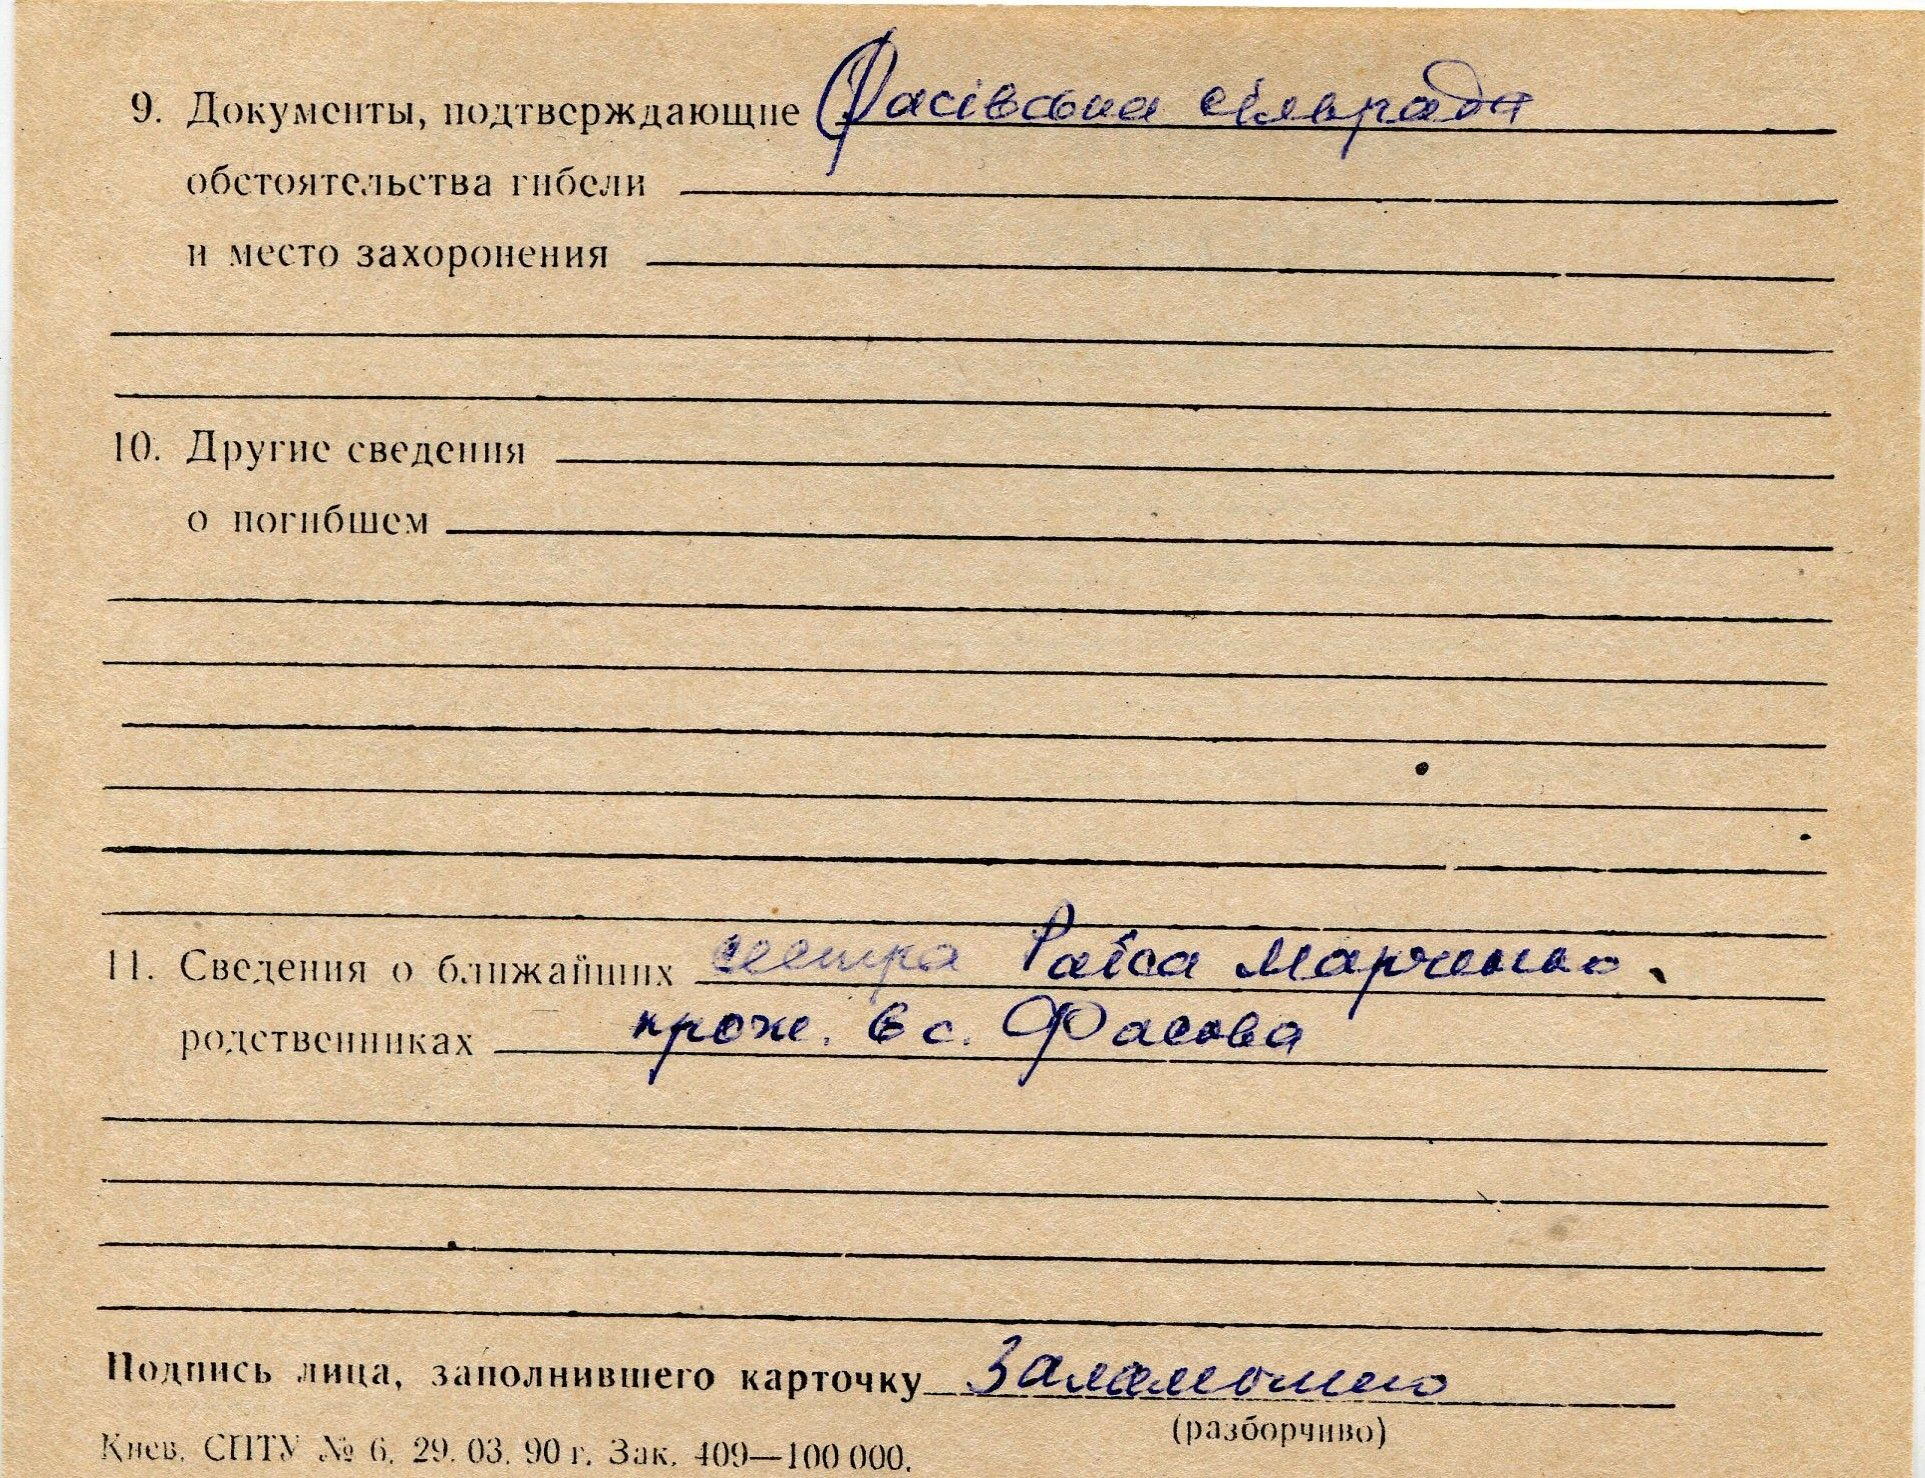 9. Документы, подтверждающие Фасівська сільрада
обстоятельства гибели
и место захоронения
10. Другие сведения
о погибшем
11. Сведения о ближайших сестра Раїса Марченко.
родственниках прож. в с. Фасова
Подпись лица, заполнившего карточку
(разборчиво)
Киев. СПТУ № 6. 29. 03. 90 г. Зак. 409—100 000.